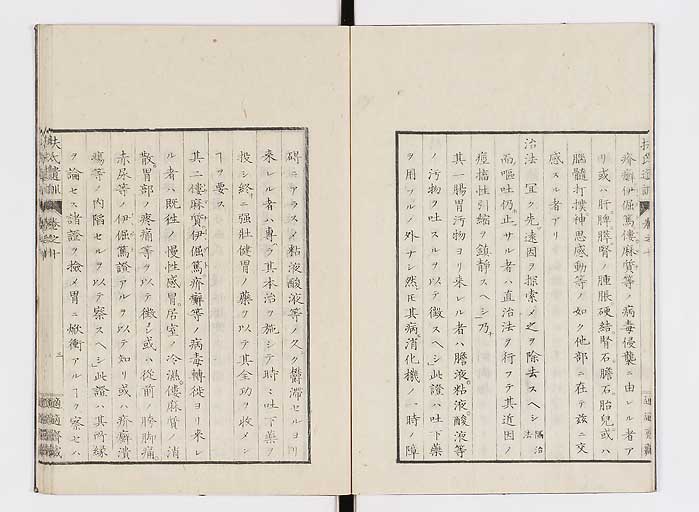 疥癬伊倔篤僂麻質等ノ病毒侵襲ニ由レル者ア
リ或ハ肝脾膵腎ノ腫脹硬結腎石膽石胎兒或ハ
腦髓打撲神思感動等ノ如ク他部ニ在テ玆ニ交
感スル者アリ
治法 宜ク先遠因ヲ探索メ之ヲ除去スヘシ 治法
而嘔吐仍止サル者ハ直治法ヲ行フテ其近因ノ
痙攣性引縮ヲ鎮靜スヘシ乃
其一腸胃汚物ヨリ來レル者ハ膽液粘液酸液等
ノ汚物ヲ吐スルヲ以テ徴スヘシ此證ハ吐下藥
ヲ用フルノ外ナシ然氏其病消化機ノ一時ノ障
碍ニアラスメ粘液酸液等ノ久ク鬱滯セルヨリ
來レル者ハ專ラ其本治ヲ施シテ時々吐下藥ヲ
投シ終ニ強壯健胃ノ藥ヲ以テ其全功ヲ收メン
ヿヲ要ス
其二僂麻質伊倔篤疥癬等ノ病毒轉徙ヨリ來レ
ル者ハ既往ノ慢性感冒居室ノ冷濕僂麻質ノ消
散胃部ノ疼痛等ヲ以テ徴シ或ハ從前ノ胯脚痛
赤尿等伊倔篤證アルヲ以テ知リ或ハ疥癬潰
瘍等ノ内陷セルヲ以テ察スヘシ此證ハ其所縁
ヲ論セス諸證ヲ撿メ胃ニ焮衝アルヿヲ察セハ
扶氏遺訓 卷之十 三 適適齋藏